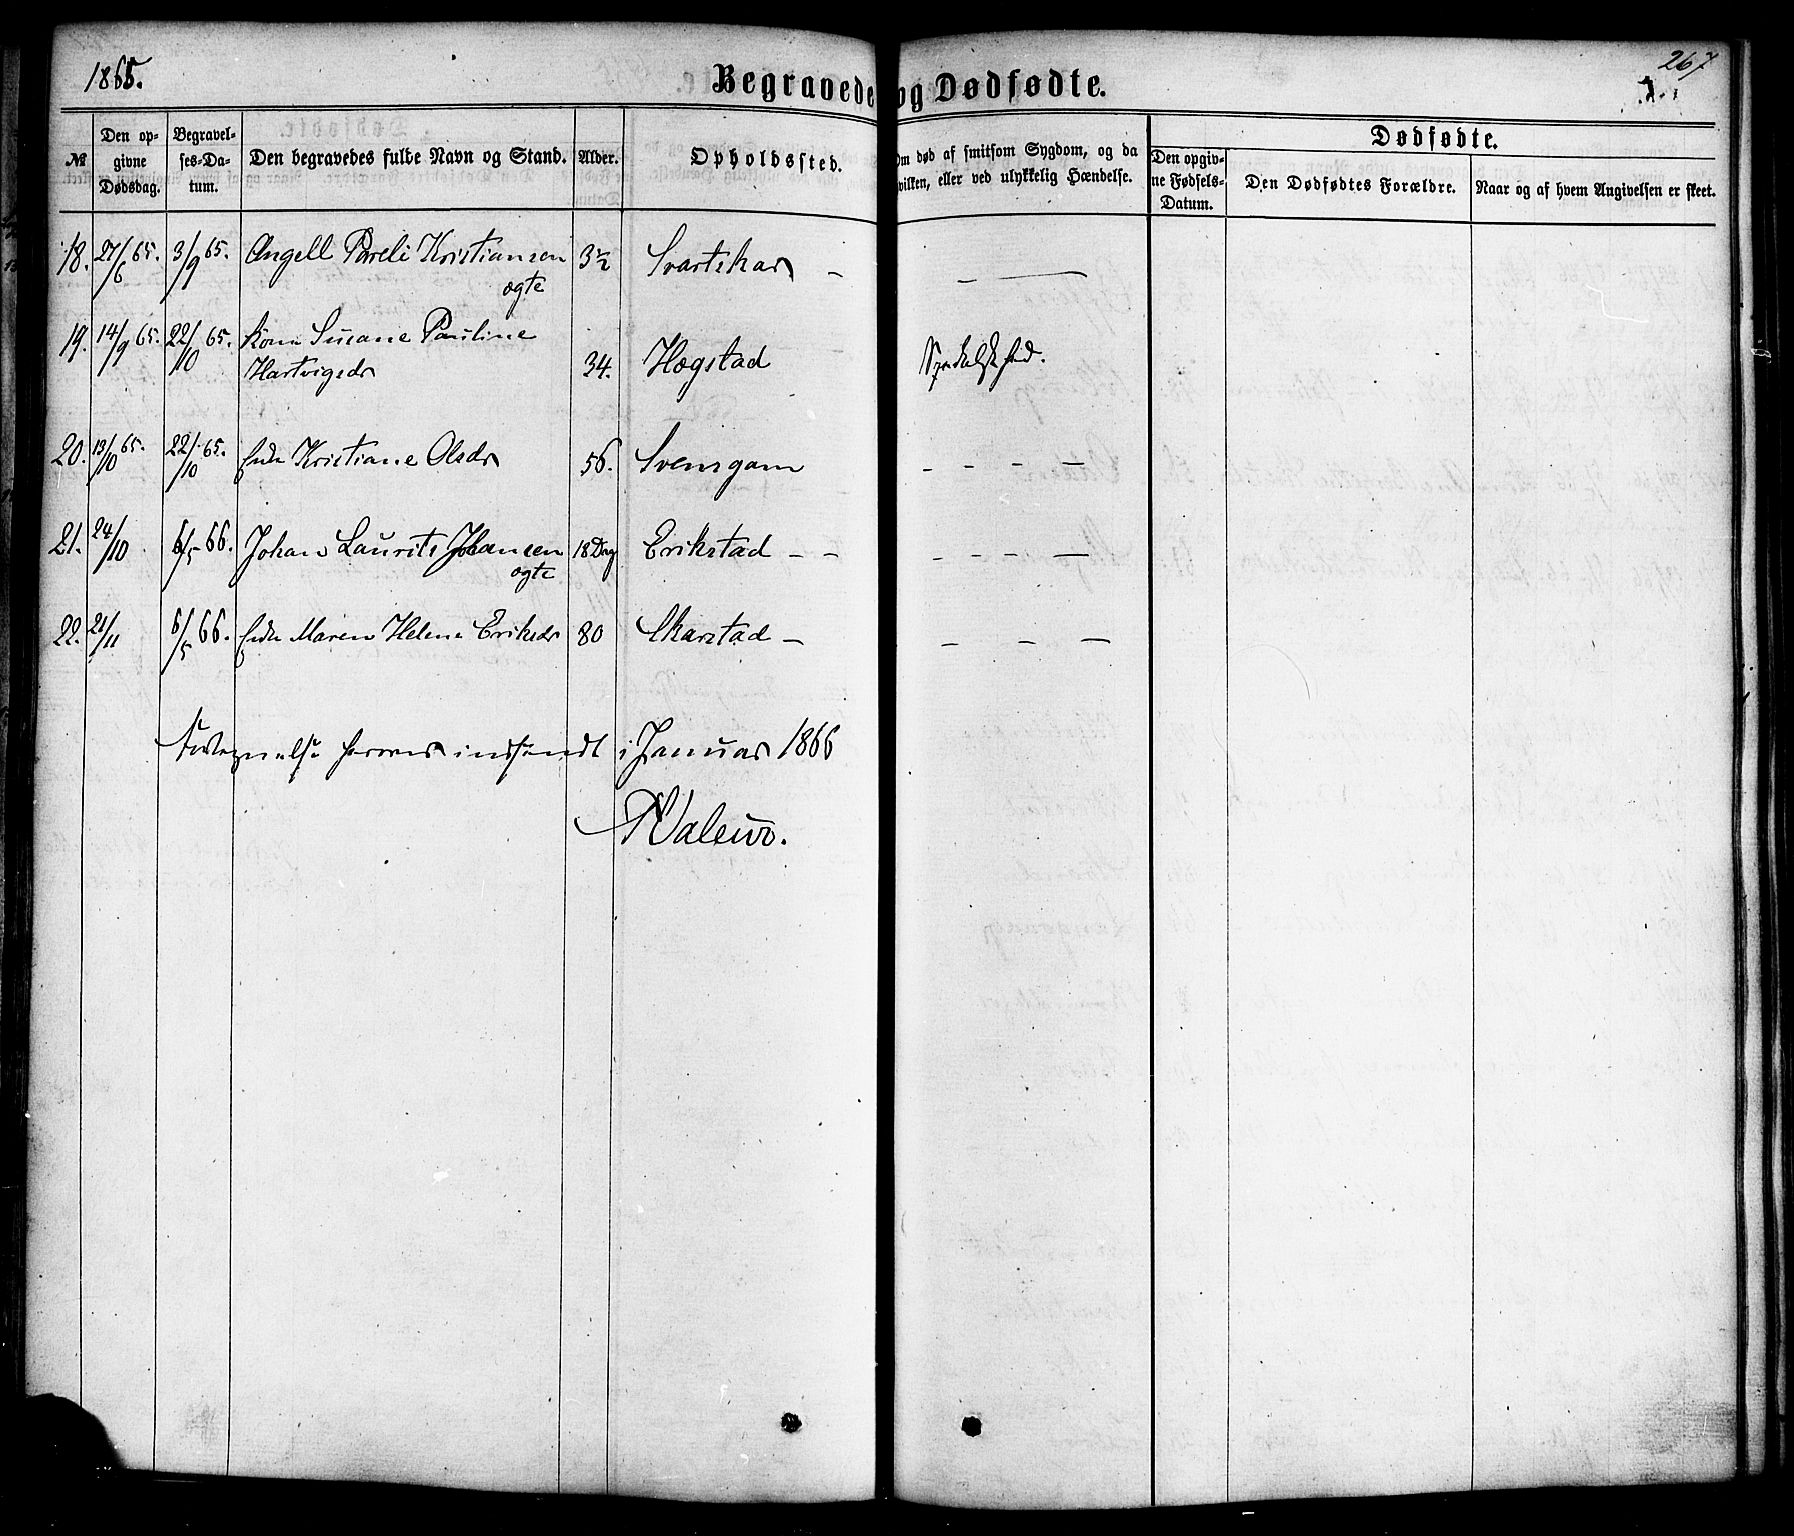 1865.
267
Begravede og Dødfødte.
№
Den opgivne Dødsdag.
Begravelses-Datum.
Den begravedes fulde Navn og Stand.
Alder.
Opholdssted.
Om død af smitsom Sygdom, og da hvilken, eller ved ulykkelig Hændelse.
Dødfødte.
Den opgivne Fødsels-Datum.
Den Dødfødtes Forældre.
Naar og af hvem Angivelsen er skeet.
18. 27/6 65. 3/9 65. Angell Pareli Kristiansen 3½ Svartskar –
ægte
19. 14/9 65. 22/10 65. Kone Susane Pauline
Hartvigsdr 34. Hægstad Spedalskhed.
20. 13/10 65. 22/10 65. Enke Kristiane Olsdr 56. Svensgam – – – –
21. 24/10 6/5 66. Johan Laurits Johansen 18 Dag Erikstad – – – – – –
ægte
22. 21/11 6/5 66. Enke Maren Helene Eriksdr 80 Skarstad – – – – –
Fortegnelse indsendt i Januar 1866